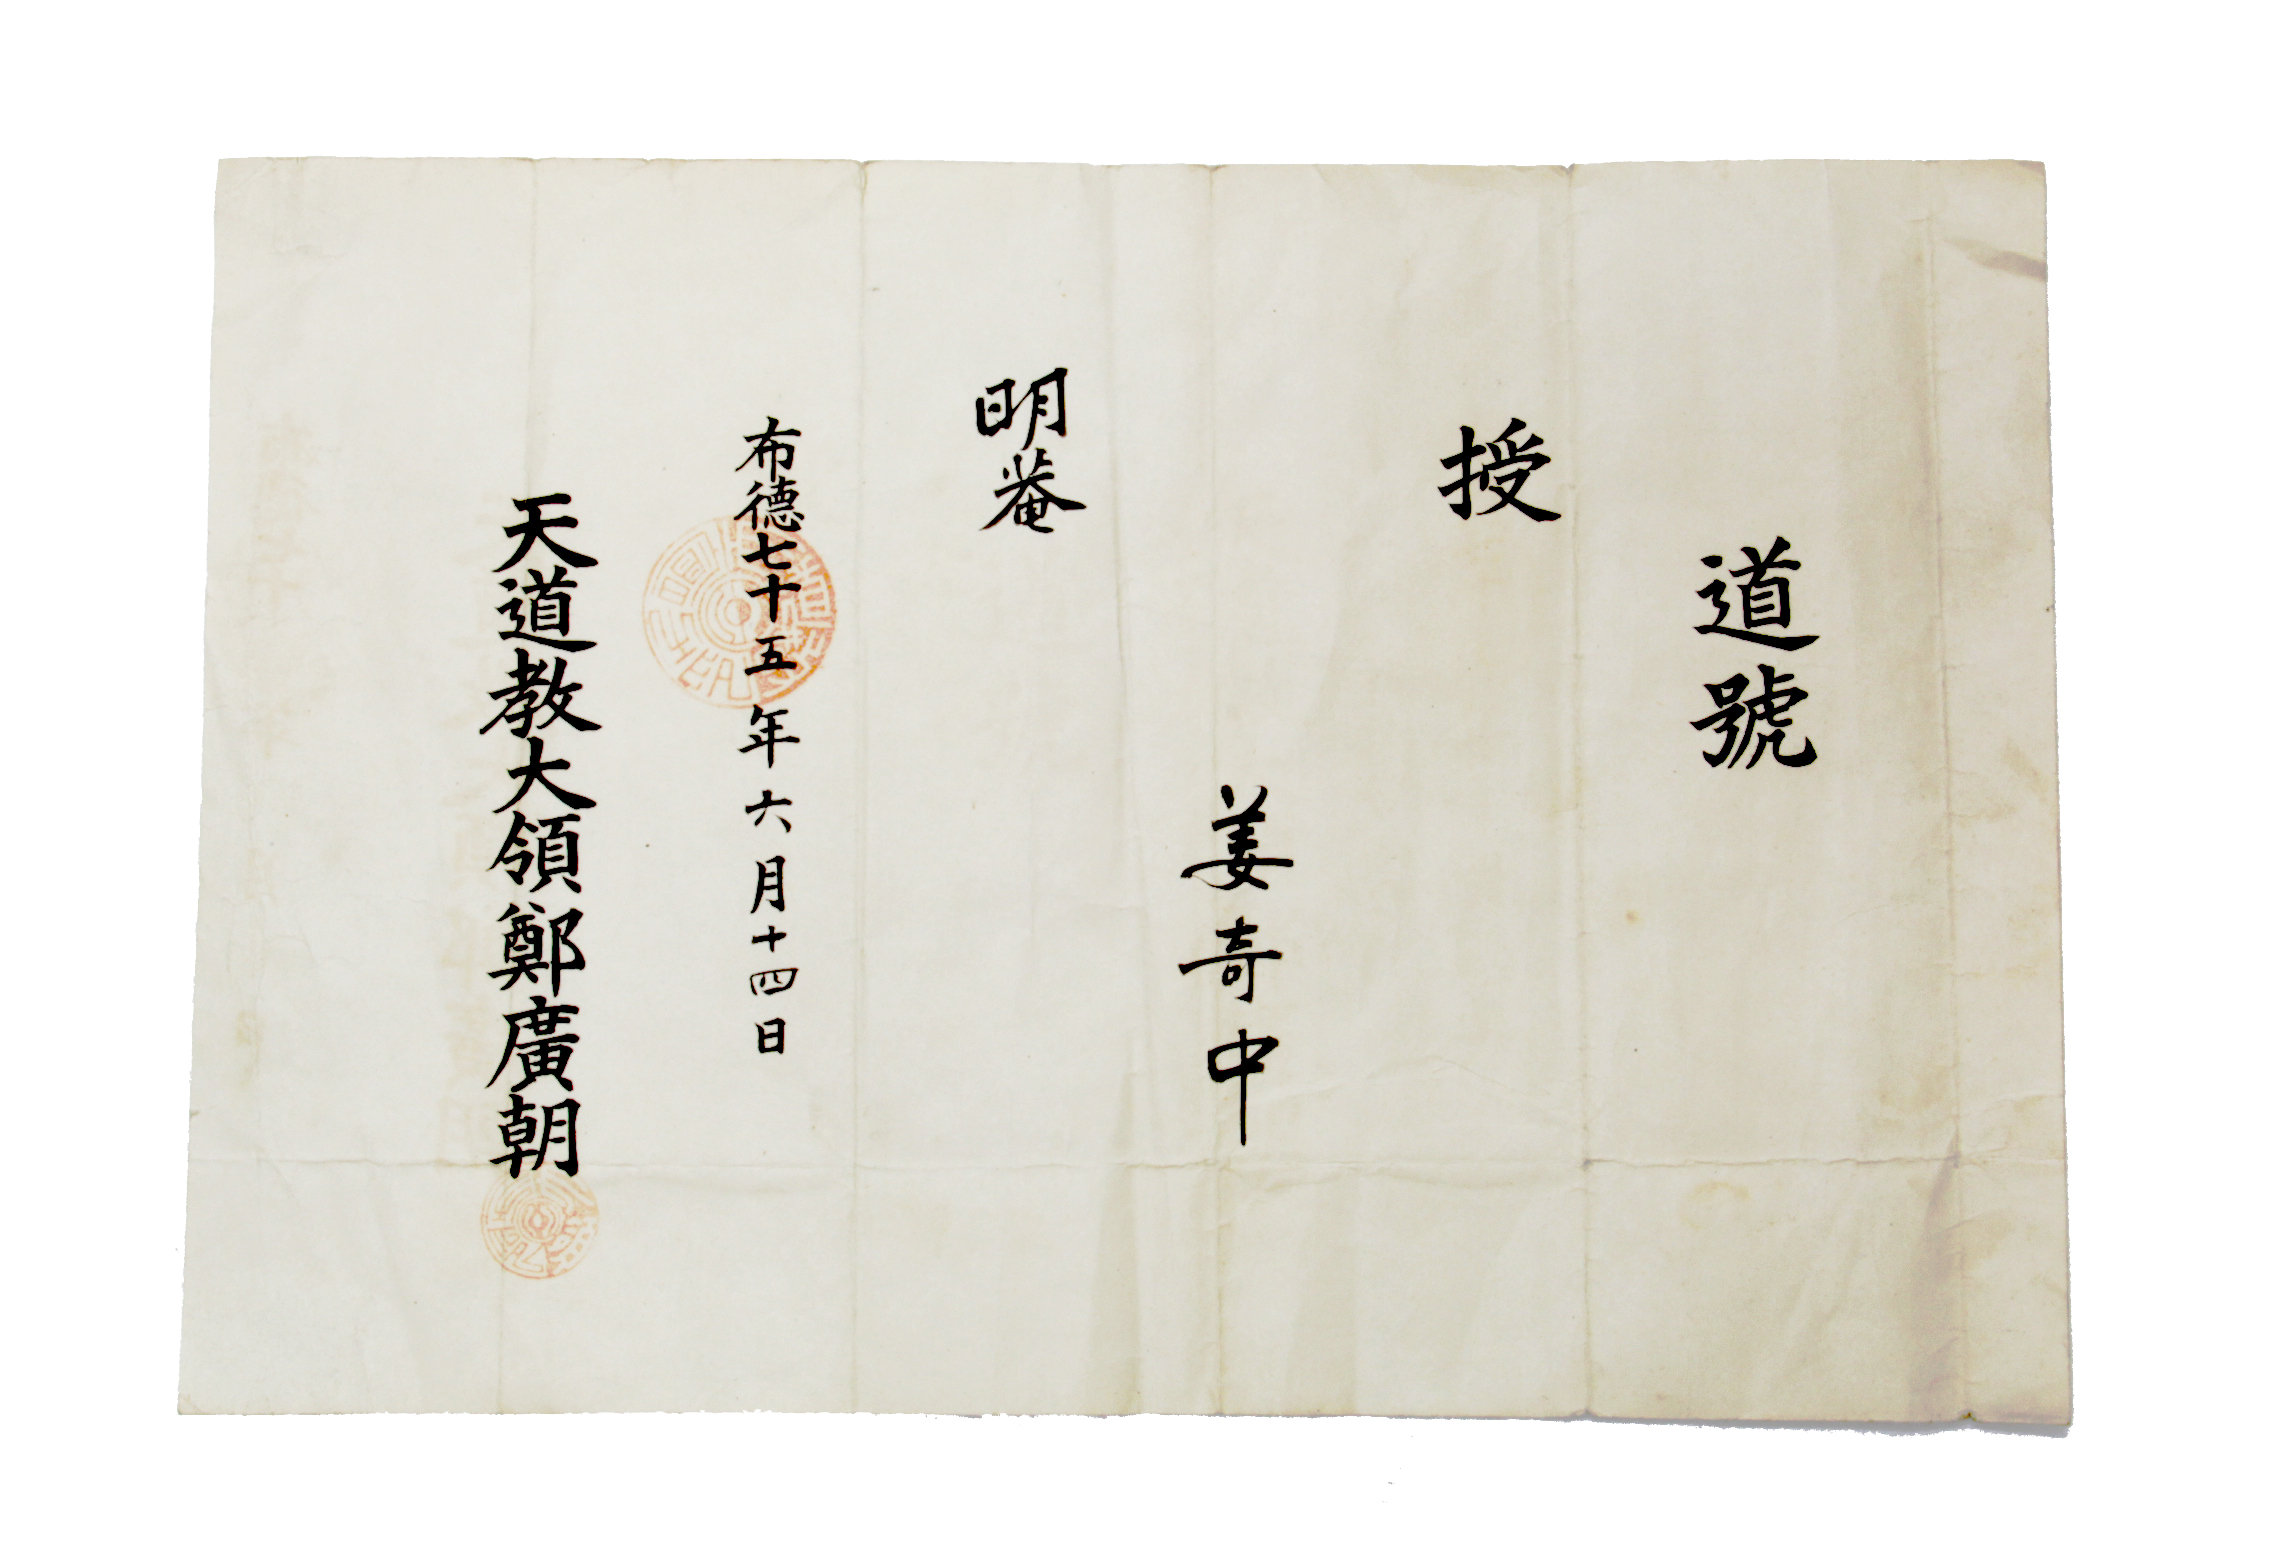 道號
授
姜奇中
明菴
布德七十五年六月十四日
天道教大領鄭廣朝